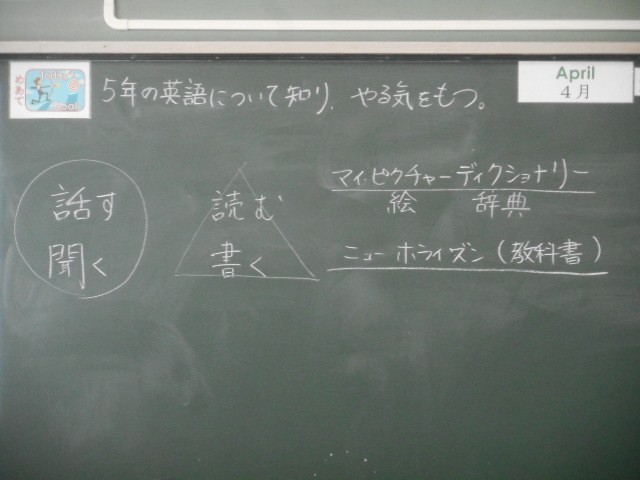 めあて
Today's Goal
5年の英語について知り、やる気をもつ。
April
4月
話す
聞く
読む
書く
マイ・ピクチャーディクショナリー
絵 辞典
ニューホライズン(教科書)